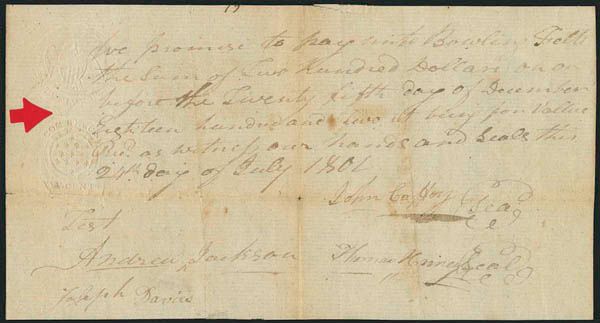 We promise to pay unto Bowling Felts
the Sum of Two Hundred Dollars on or
before the Twenty fifth day of December
Eighteen hundred and two it being for Value
Recd. as witness our hands and Seals this
24th. day of July 1801
John Seal
Test
Andrew Jackson Thomas Seal
Joseph Davies